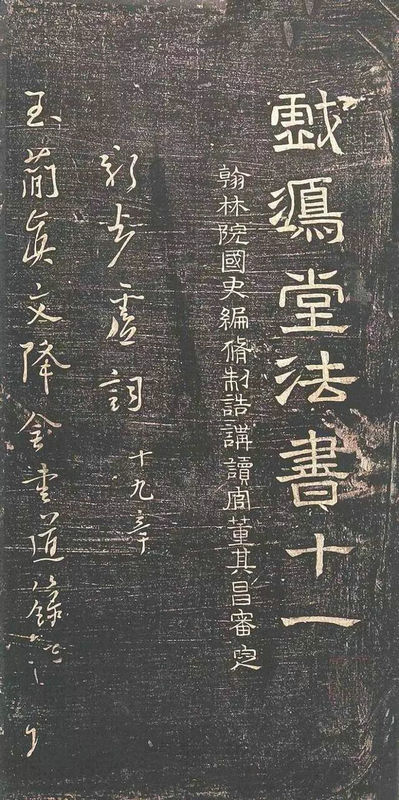 戲鴻堂法書十一
翰林院國史編脩制誥講讀官董其昌審定
新步虛詞十九章
玉簡真文降金書道籙